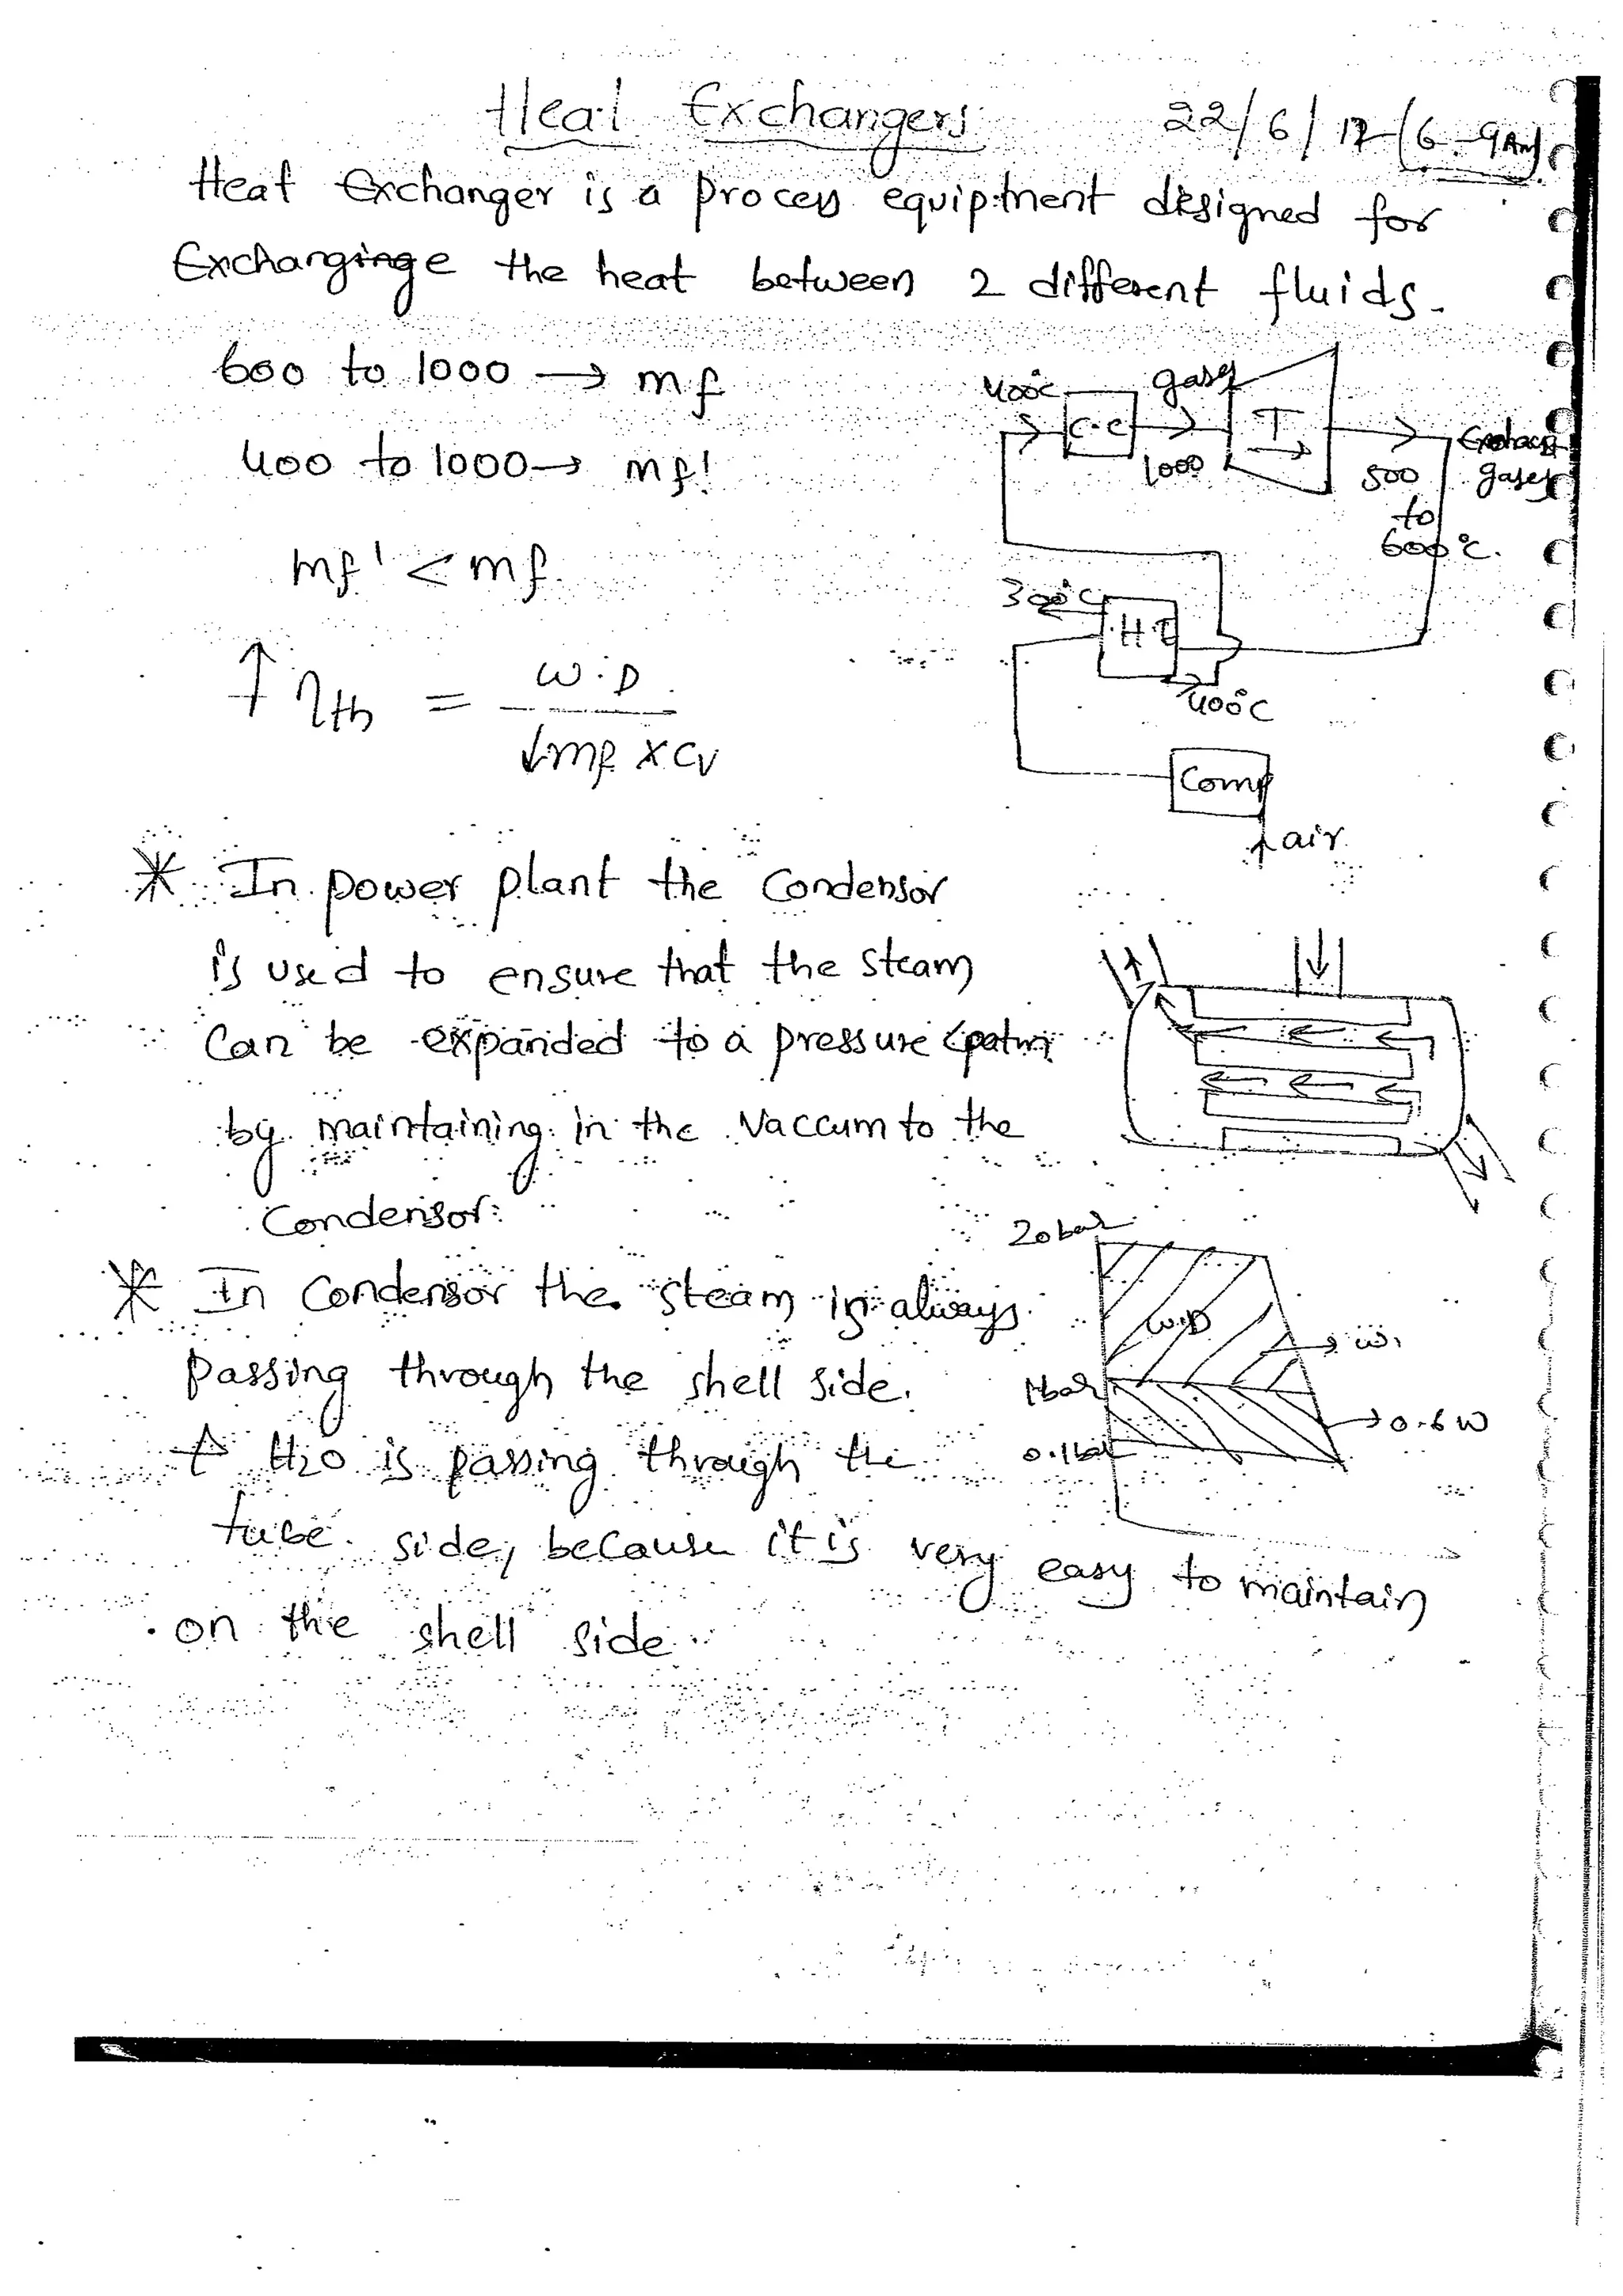 Heat Exchangers 22/6/17 (6-9AM)
Heat Exchanger is a process equiptment designed for
Exchanginge the heat between 2 different fluids.
600 to 1000 → mf
400 to 1000 → mf'
mf' < mf
↑ ηth = W.D / ↓mf x CV
400°C
gases
C.C
1000
T
Exhaust
gases
500
to
600°C.
300°C
H.E
400°C
Comp
air
* In power plant the Condensor
is used to ensure that the steam
Can be expanded to a pressure <patm
by maintaining in the Vaccum to the
Condensor.
* In Condensor the steam is always
passing through the shell side.
↑ H2O is passing through the
tube side, because it is very easy to maintain
on the shell side.
20bar
W.D
1bar
0.6W
0.1bar